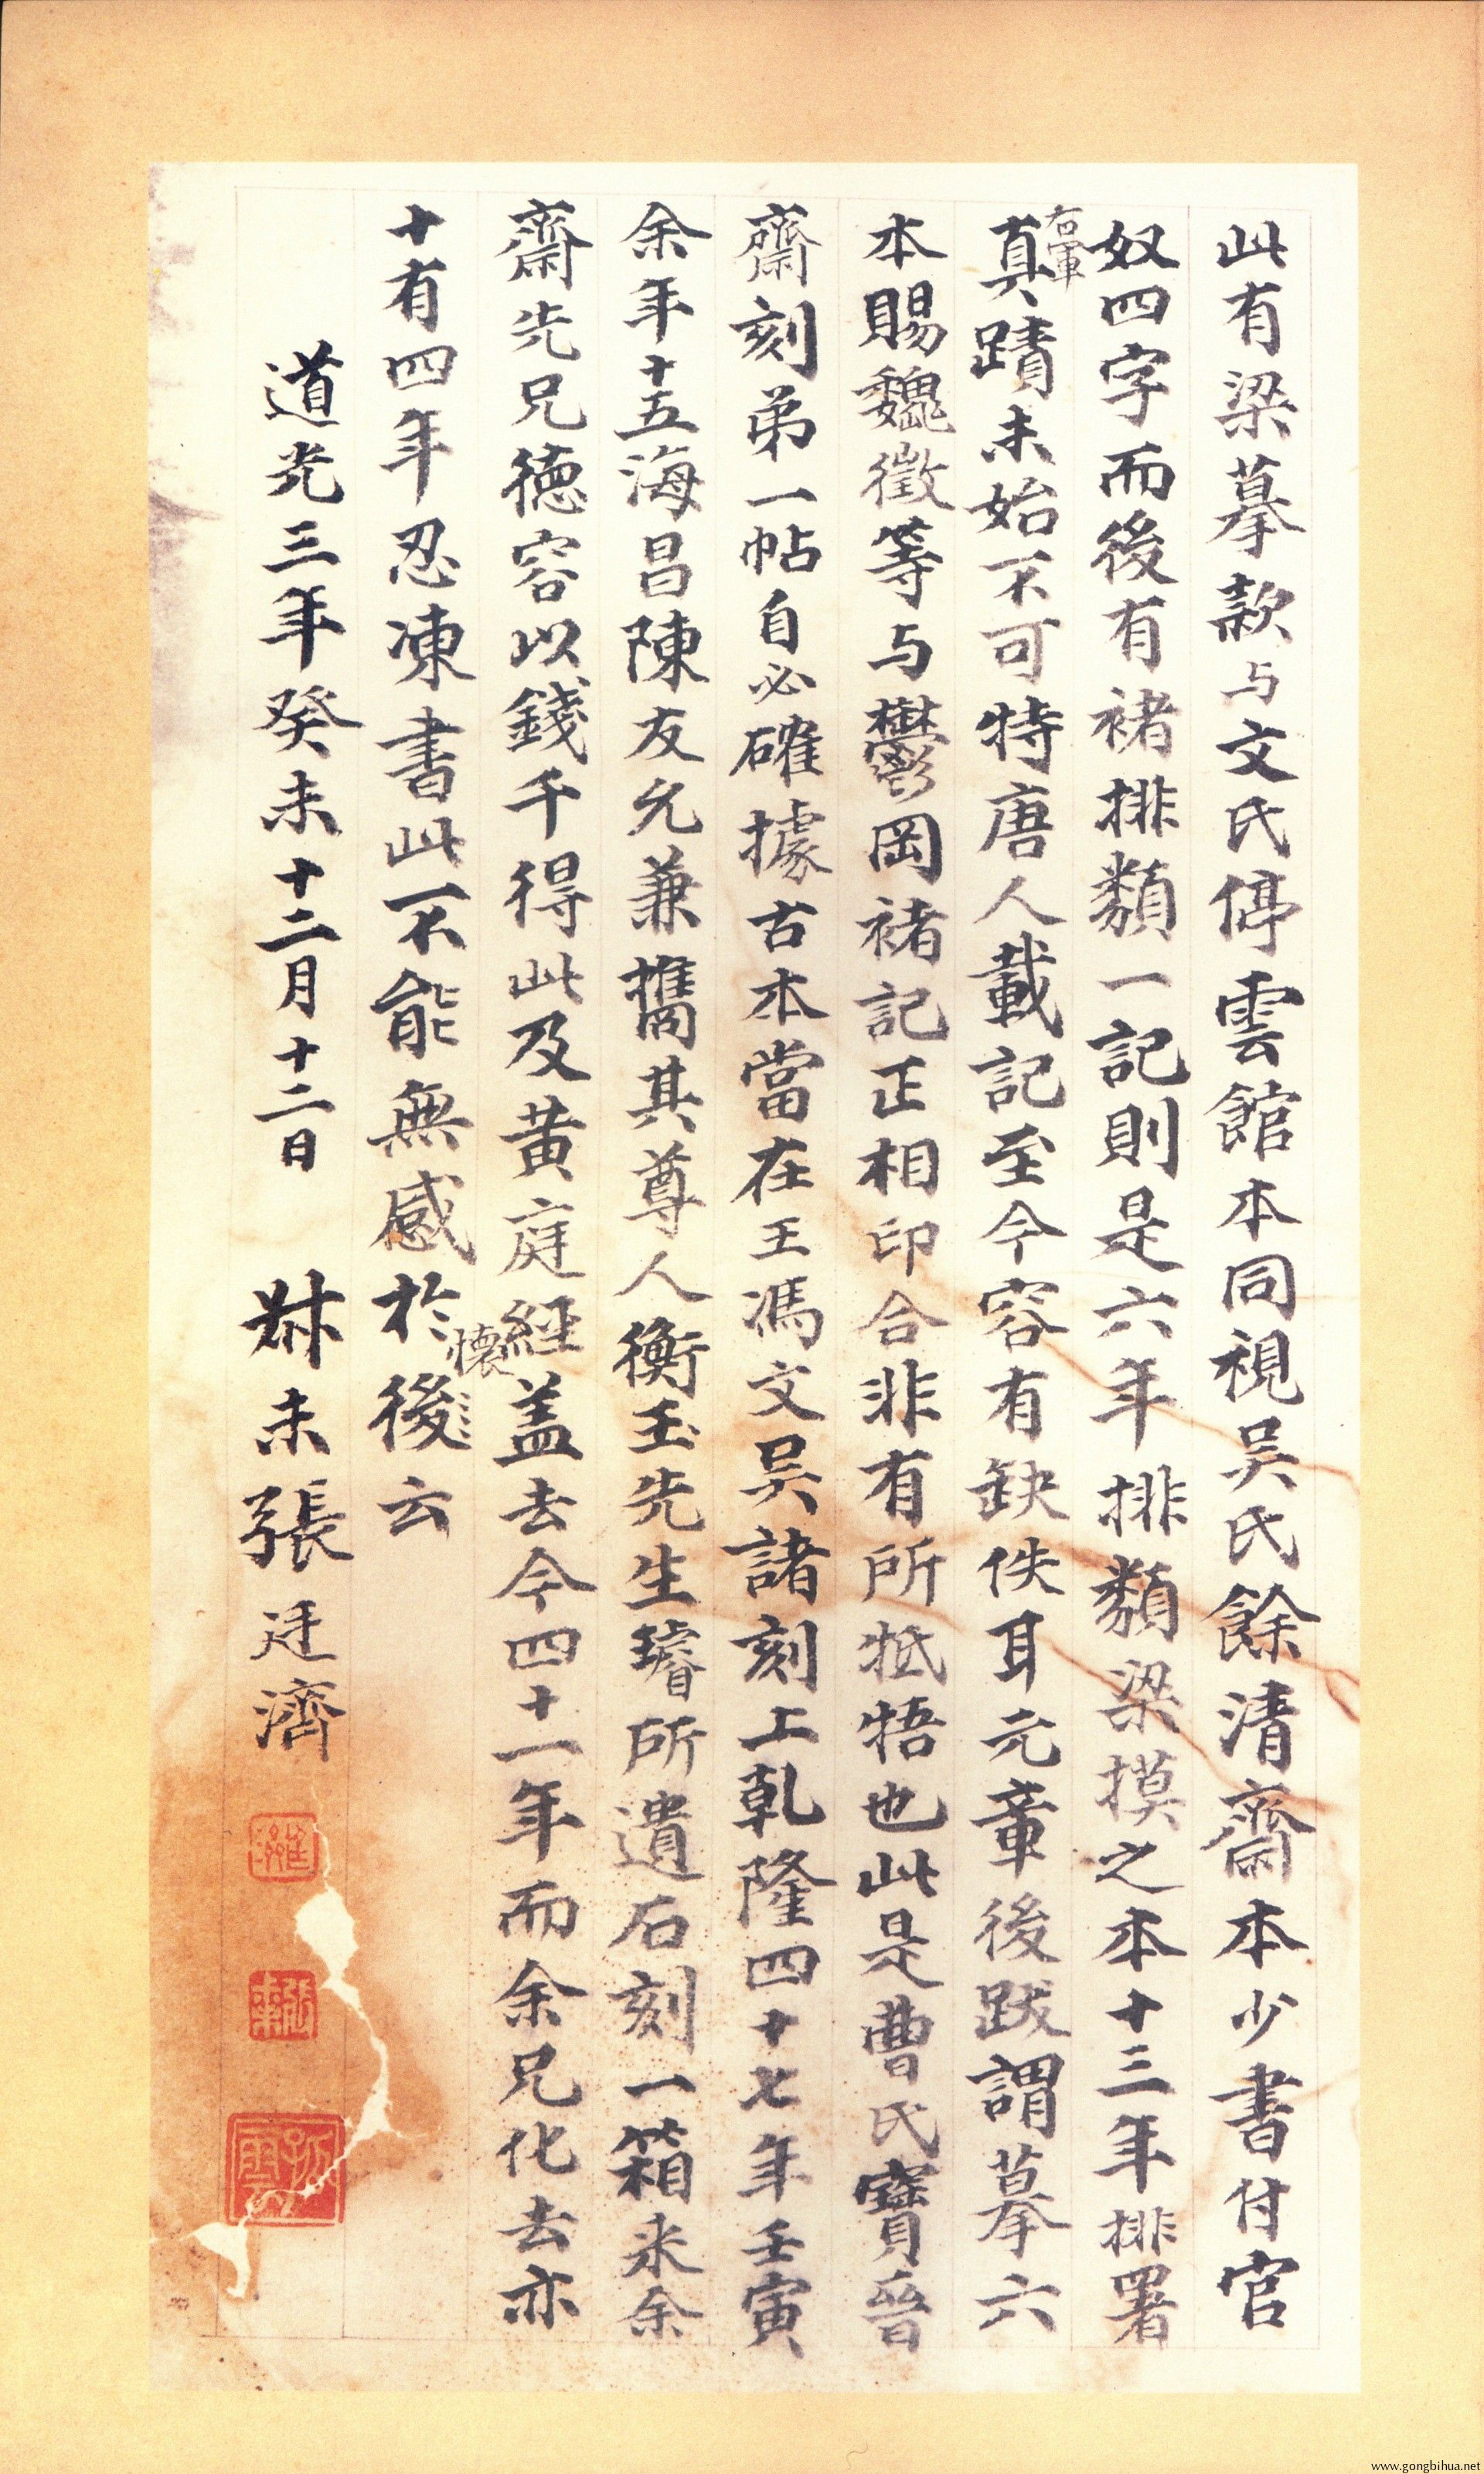 此有梁摹款与文氏停雲館本同視吴氏餘清齋本少書付官
奴四字而後有褚排類一記則是六年排類梁摸之本十三年排署
右軍
真蹟未始不可特唐人載記至今容有缺佚耳元章後跋謂摹六
本賜魏徵等与鬱岡褚記正相印合非有所牴牾也此是曹氏寶晉
齋刻弟一帖自必確據古本當在王馮文吴諸刻上乾隆四十七年壬寅
余年十五海昌陳友允兼攜其尊人衡玉先生璿所遺石刻一箱来余
齋先兄德容以錢千得此及黄庭經蓋去今四十一年而余兄化去亦
懷
十有四年忍凍書此不能無感於後云
道光三年癸未十二月十二日 尗未張廷濟
www.gongbihua.net